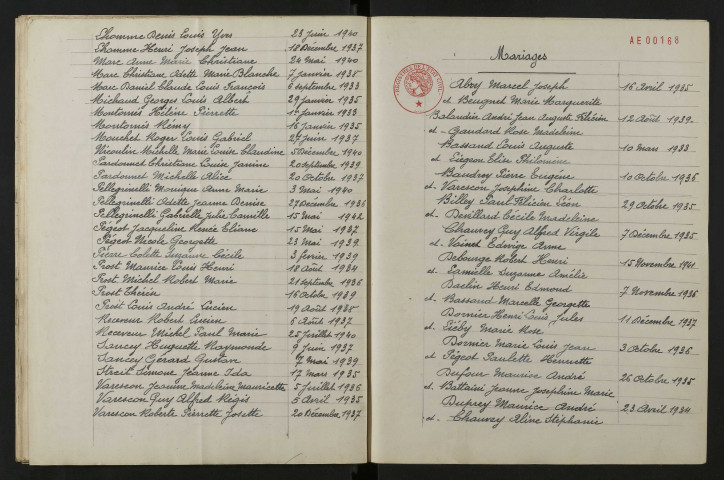 Lhomme Denis Louis Yves 23 Juin 1940
Lhomme Henri Joseph Jean 18 Décembre 1937
Marc Anne Marie Christiane 24 Mai 1940
Marc Christiane Odette Marie Blanche 7 Janvier 1938
Marc Daniel Claude Louis François 6 Septembre 1933
Michaud Georges Louis Albert 29 Janvier 1935
Montornès Hélène Pierrette 1er Janvier 1933
Montornès Rémy 16 Janvier 1935
Mouchet Roger Louis Gabriel 27 Juin 1937
Nicoulin Michelle Marie Louise Claudine 5 Décembre 1940
Pardonnet Christiane Louise Janine 20 Septembre 1939
Pardonnet Michelle Alice 20 Octobre 1937
Pellegrinelli Monique Anne Marie 3 Mai 1940
Pellegrinelli Odette Jeanne Denise 27 Décembre 1936
Pellegrinelli Gabrielle Julie Camille 15 Mai 1942
Pégeot Jacqueline Renée Eliane 15 Mai 1937
Pégeot Nicole Georgette 23 Mai 1939
Pierre Colette Suzanne Cécile 3 Février 1939
Prost Maurice Louis Henri 18 Août 1934
Prost Michel Robert Marie 21 Septembre 1936
Prost Thérèse 16 Octobre 1939
Prost Louis André Lucien 19 Août 1935
Receveur Robert Lucien 6 Août 1937
Receveur Michel Paul Marie 25 Juillet 1940
Sancey Huguette Raymonde 9 Juin 1937
Sancey Gérard Gustave 7 Mai 1939
Streit Simone Jeanne Ida 17 Mars 1935
Varescon Jeanne Madeleine Mauricette 5 Juillet 1936
Varescon Guy Alfred Régis 5 Avril 1935
Varescon Roberte Pierrette Josette 20 Décembre 1937
AE00168
Mariages
Abry Marcel Joseph 16 Avril 1935
et Beugnet Marie Marguerite
Balandier André Jean Auguste Félicien 12 Août 1939
et Gaudard Rose Madeleine
Bassand Louis Auguste 10 Mars 1933
et Philomène
Baudrey Pierre Eugène 10 Octobre 1936
et Varescon Josephine Charlotte
Billey Paul Félicien Léon 29 Octobre 1935
et Devillard Cécile Madeleine
Chauvey Guy Alfred Virgile 7 Décembre 1935
et Voinet Edwige Anne
Debouge Robert Henri 15 Novembre 1941
et Lamielle Suzanne Amélie
Henri Edmond 7 Novembre 1936
et Bassand Marcelle Georgette
Dornier Henri Louis Jules 11 Décembre 1937
et Marie Rose
Dornier Marie Louis Jean 3 Octobre 1936
et Pégeot Paulette Henriette
Dufour Maurice André 26 Octobre 1935
et Battaini Jeanne Josephine Marie
Duprey Maurice André 23 Avril 1934
et Chauvey Aline Stéphanie